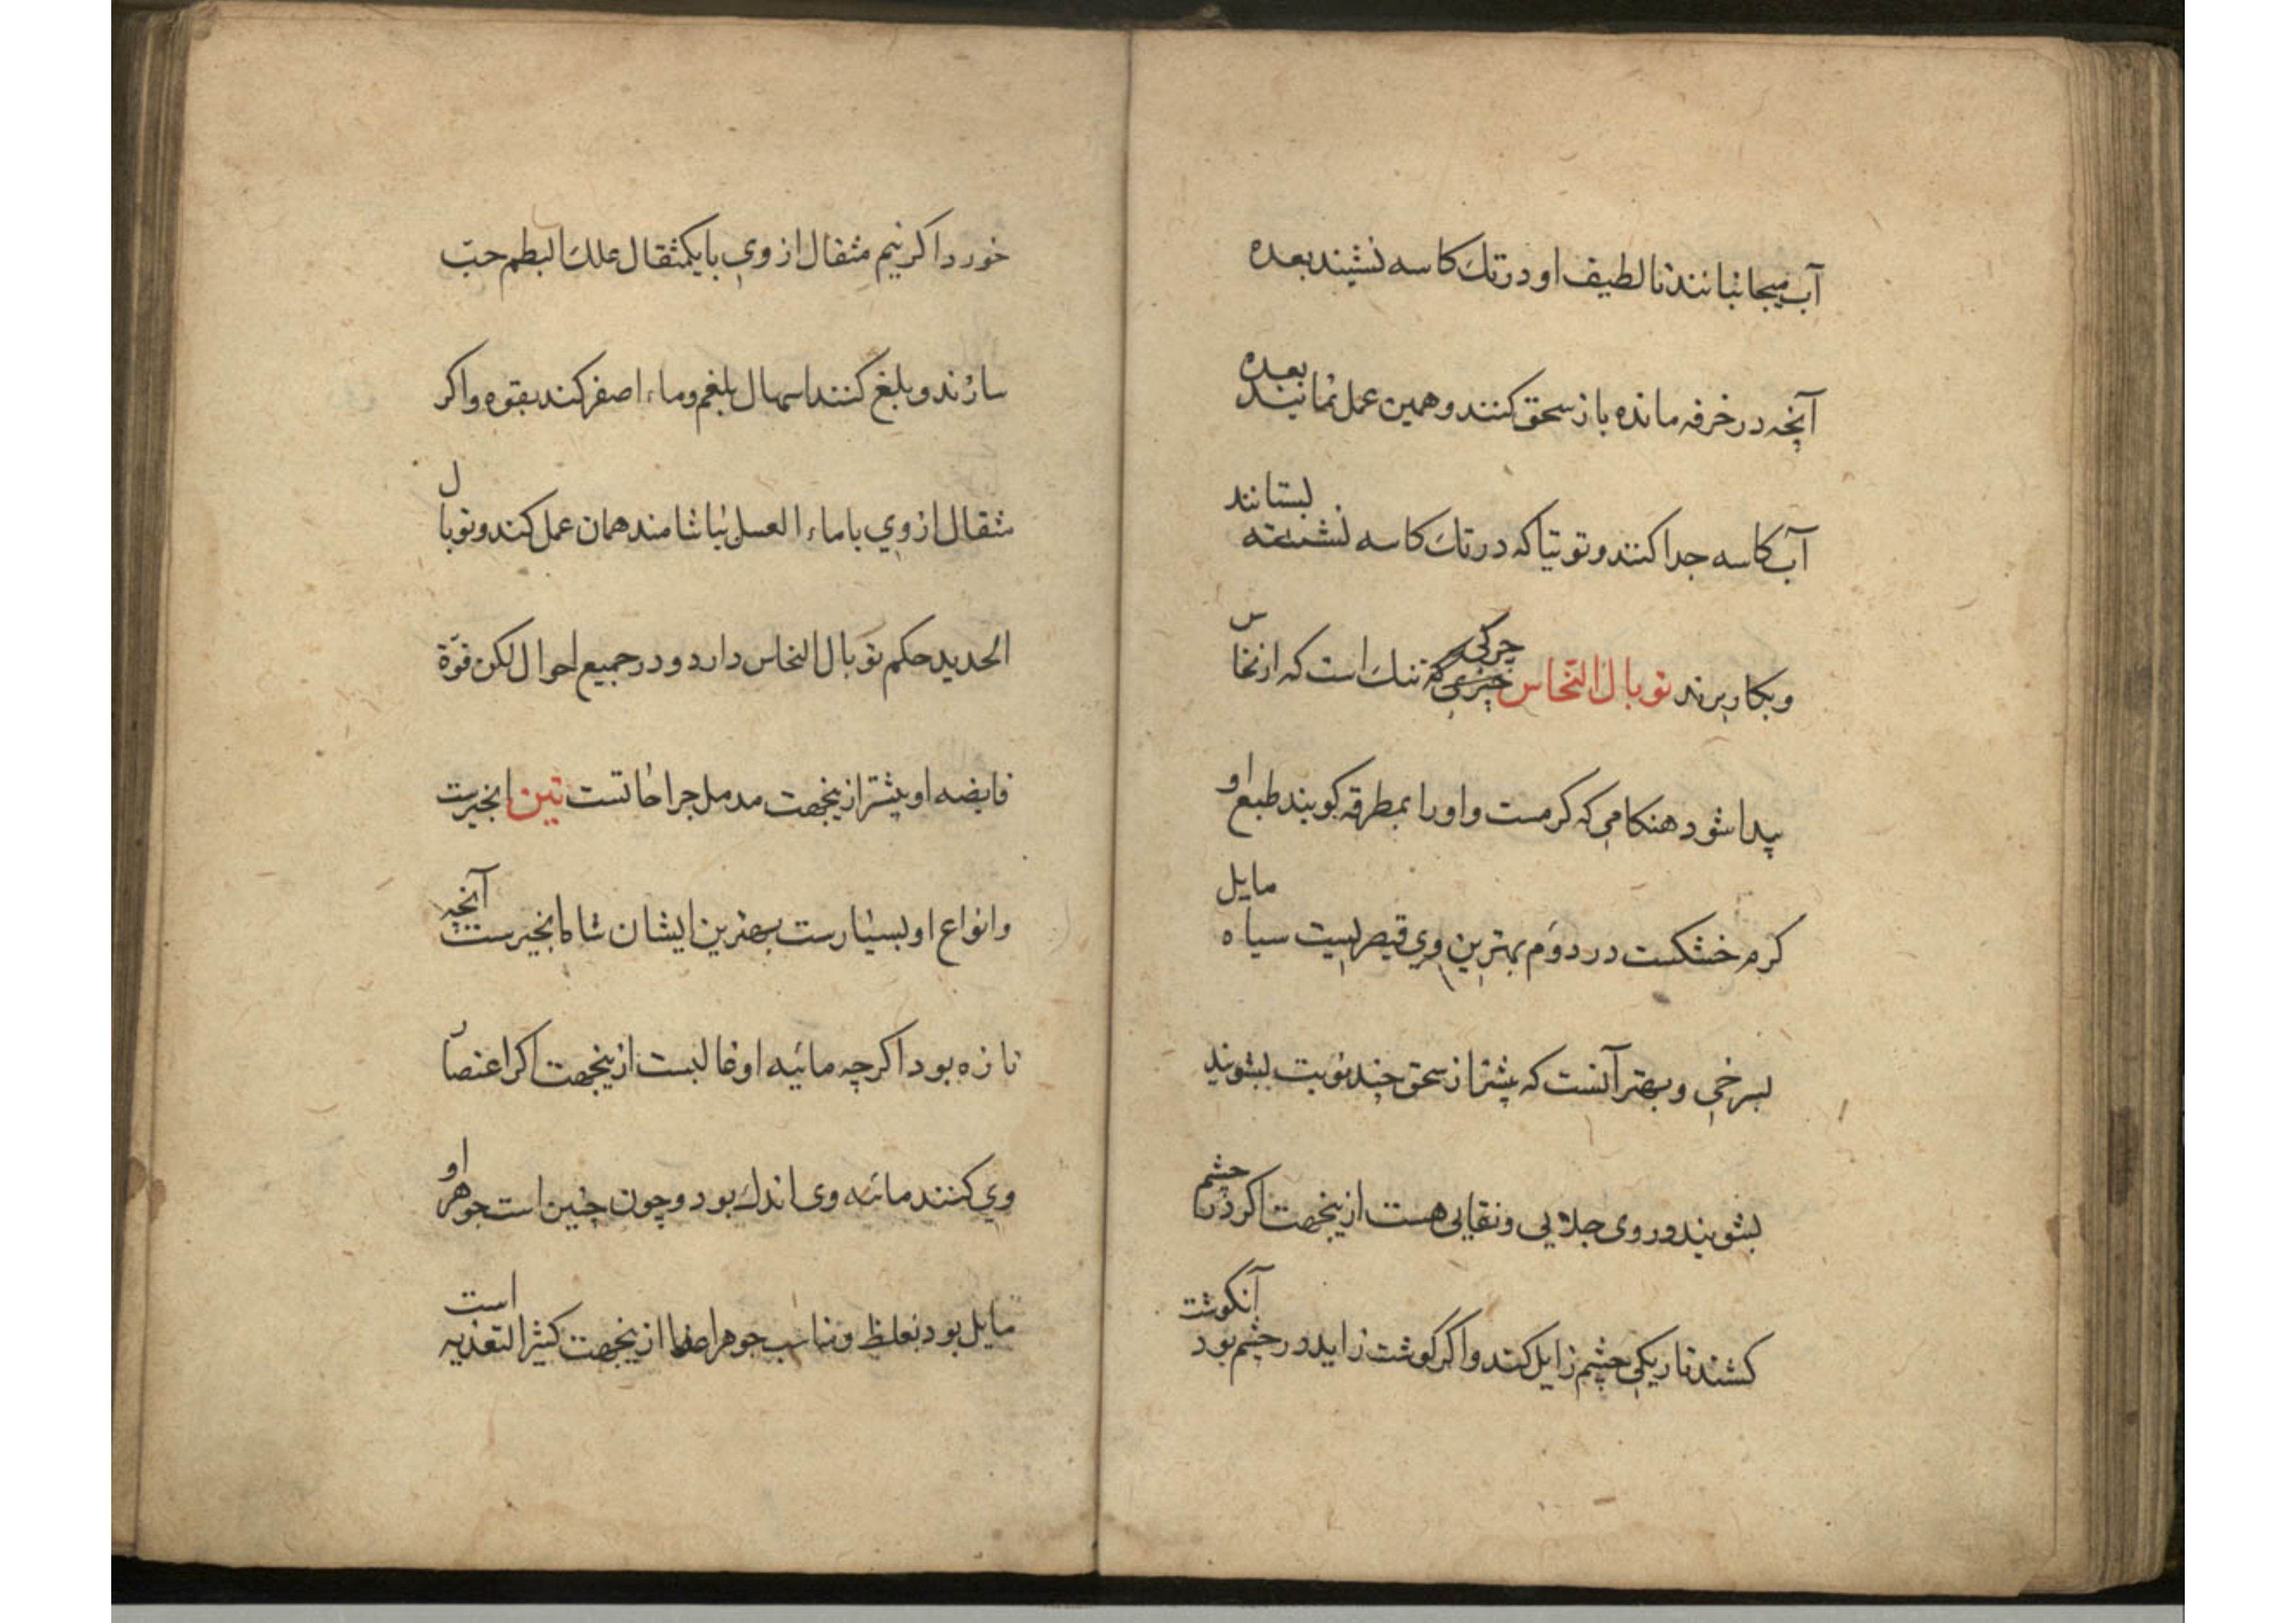 آب میجانبانند تا لطیف او در تك كاسه نشیند بعده
آنچه در خرقه مانده باز سحق كنند و همین عمل نمایند بعده
آب كاسه جدا كنند و توتیا كه در تك كاسه نشسته بستانند
و بكار برند توبال النحاس چركی تنك است كه از نحاس
پیدا شود هنكامی كه كرمست و او را بمطرقه كوبند طبع او
كرم خشكست در دوّم بهترین وی قبرسیست سیاه مایل
بسرخی و بهتر آنست كه پیشتر از سحق چند نوبت بشویند
بشویند و در وی جلایی و نقایی هست ازینجهت اكر در چشم
كشند تاریكی چشم زایل كند و اكر كوشت زاید در چشم بود آنكوشت
خورد اكر نیم مثقال از وی با یكمثقال علك البطم حبّ
سازند و بلغ كنند اسهال بلغم و ماء اصفر كند بقوه و اكر
مثقال از وی با ماء العسل بیاشامند همان عمل كند و توبال
الحدید حكم توبال النحاس دارد و در جمیع احوال لكن قوّة
قابضه او بیشتر ازینجهت مدمل جراحاتست تین انجیرست
و انواع او بسیارست بهترین ایشان شاه انجیرست آنچه
تازه بود اكرچه مائیه او غالبست ازینجهت اكر اعتصار
وی كنند مائیه وی اندك بود و چون چنین است جوهر او
مایل بود بغلظ و مناسب جوهر اعضا ازینجهت كثیر التغذیه است